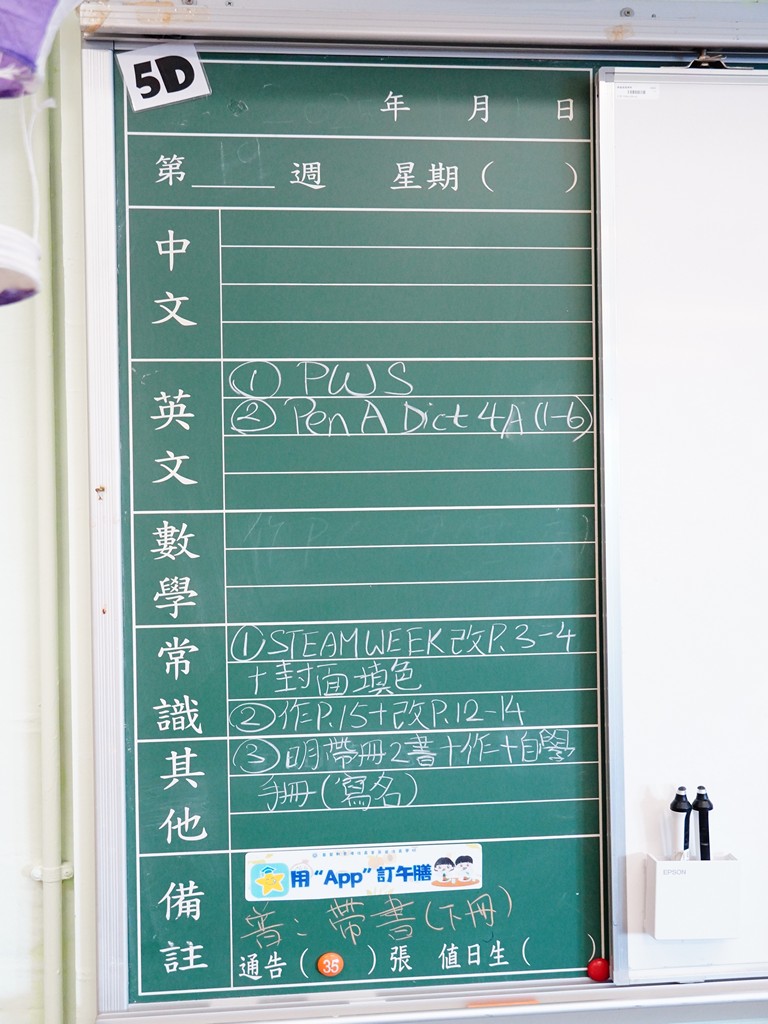 5D
年 月 日
第 週 星期( )
中文
英文
① PWS
② Pen A Dict 4A (1-6)
數學
作P.
常識
① STEAM WEEK 改P.3-4
+封面填色
② 作P.15+改P.12-14
其他
③ 明帶冊2書+作+自學
手冊(寫名)
備註
用 “App” 訂午膳
普: 帶書(下冊)
通告( 35 )張 值日生( )
EPSON